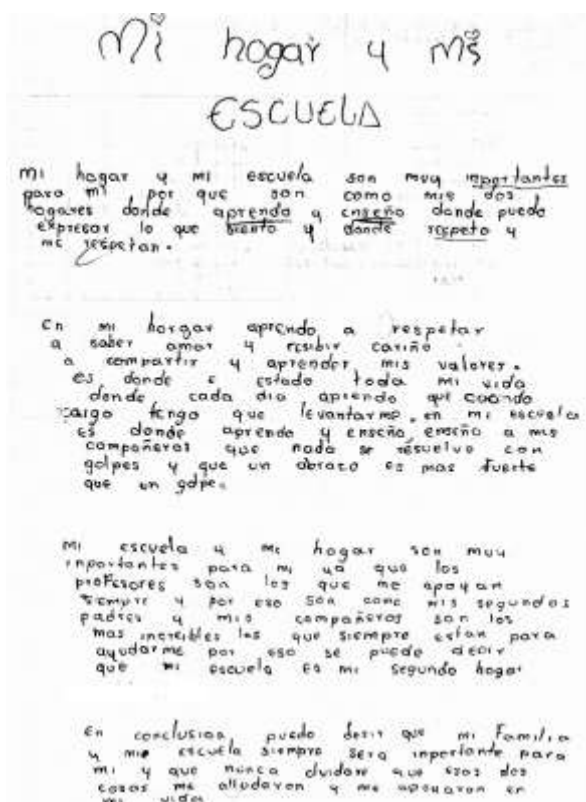 Mi hogar y mi
ESCUELA
Mi hogar y mi escuela son muy inportantes
para mi por que son como mis dos
hogares donde aprendo y enseño donde puedo
expresar lo que siento y donde respeto y
me respetan.
En mi horgar aprendo a respetar
a saber amar y resibir cariño
a compartir y aprender mis valores.
es donde e estado toda mi vida
donde cada dia aprendo que cuando
caigo tengo que levantarme. en mi escuela
es donde aprendo y enseño, enseño a mis
compañeros que nada se resuelve con
golpes y que un abrazo es mas fuerte
que un golpe.
Mi escuela y mi hogar son muy
inportantes para mi ya que los
profesores son los que me apoyan
siempre y por eso son como mis segundos
padres y mis compañeros son los
mas increibles los que siempre estan para
ayudarme por eso se puede decir
que mi escuela es mi segundo hogar
En conclusion puedo desir que mi familia
y mi escuela siempre sera inportante para
mi y que nunca olvidare que esas dos
cosas me alludaron y me apoyaron en
mi vida